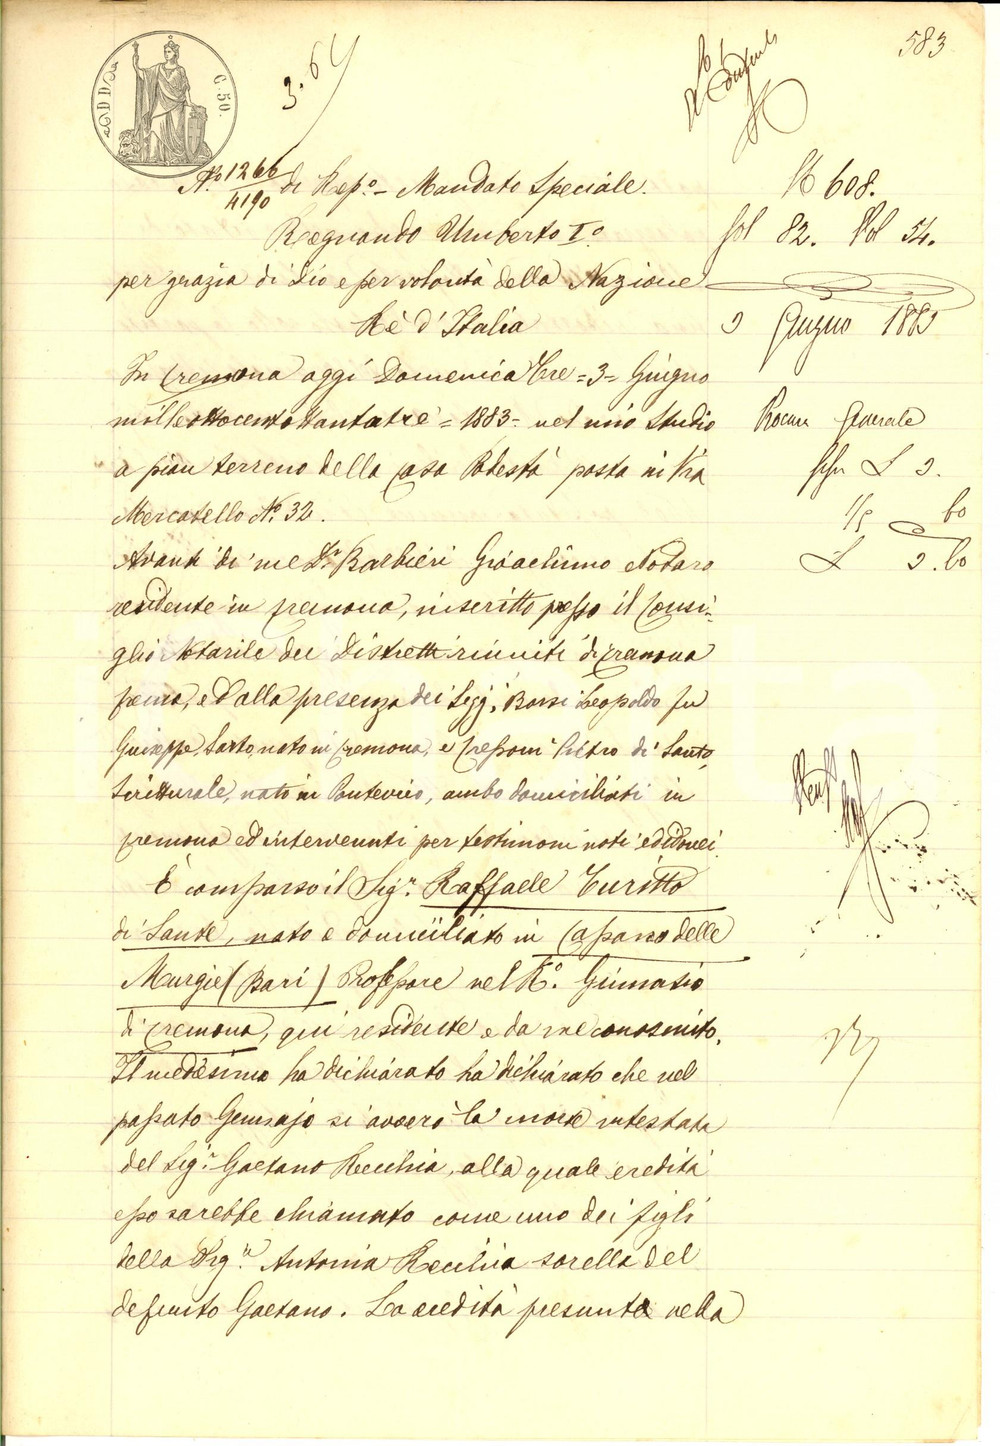 583
3.64
C. 50.
No 1266/4190 di Rep.o - Mandato Speciale.
Regnando Umberto Io
per grazia di Dio e per volontà della Nazione
Rè d'Italia
In Cremona oggi Domenica Tre = 3 = Giugno
milleottocentottantatrè = 1883 = nel mio Studio
a pian terreno della Casa Podestà posta in Via
Mercatello No. 32.
Avanti di me Dr. Barbieri Gioachimo Notaro
residente in Cremona, inscritto presso il Consi-
glio Notarile dei Distretti riuniti di Cremona
e dalla presenza dei Sigg.i Bossi Leopoldo fu
Giuseppe, Sarto, nato in Cremona, e Pietro di Santo,
Scritturale, nato in Pontevico, ambo domiciliati in
Cremona ed intervenuti per testimoni noti ed idonei
È comparso il Sig.r Raffaele Turitto
di Sante, nato e domiciliato in Cassano delle
Murgie (Bari) Professore nel R.o Ginnasio
di Cremona, qui residente e da me conosciuto.
Il medesimo ha dichiarato ha dichiarato che nel
passato Gennajo si avverò la morte intestata
del Sig.r Gaetano Recchia, alla quale eredità
esso sarebbe chiamato come uno dei figli
della Sig.ra Antonia Recchia sorella del
defunto Gaetano. La eredità presunta nella
N 608.
fol 82. Vol 54.
3 Giugno 1883
Procura Generale
L 3.
60
L 3.60